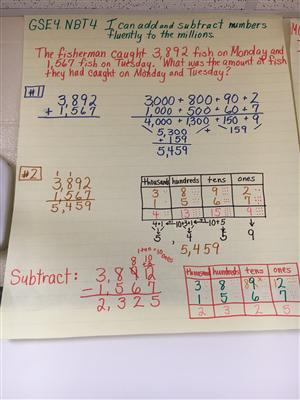 GSE4.NBT4 I can add and subtract numbers
fluently to the millions.
The fisherman caught 3,892 fish on Monday and
1,567 fish on Tuesday. What was the amount of fish
they had caught on Monday and Tuesday?
#1
3,892
+ 1,567
3000 + 800 + 90 + 2
1,000 + 500 + 60 + 7
4,000 + 1,300 + 150 + 9
5,300 + 159
+ 159
5,459
#2
1 1
3,892
1,567
5,459
thousands hundreds tens ones
3 8 9 2
1 5 6 7
4 13 15 9
5, 4 5 9
5,459
Subtract:
1 ten = 10 ones
8 10
3,892
- 1,567
2,325
thousands hundreds tens ones
3 8 9 2
1 5 6 7
2 3 2 5